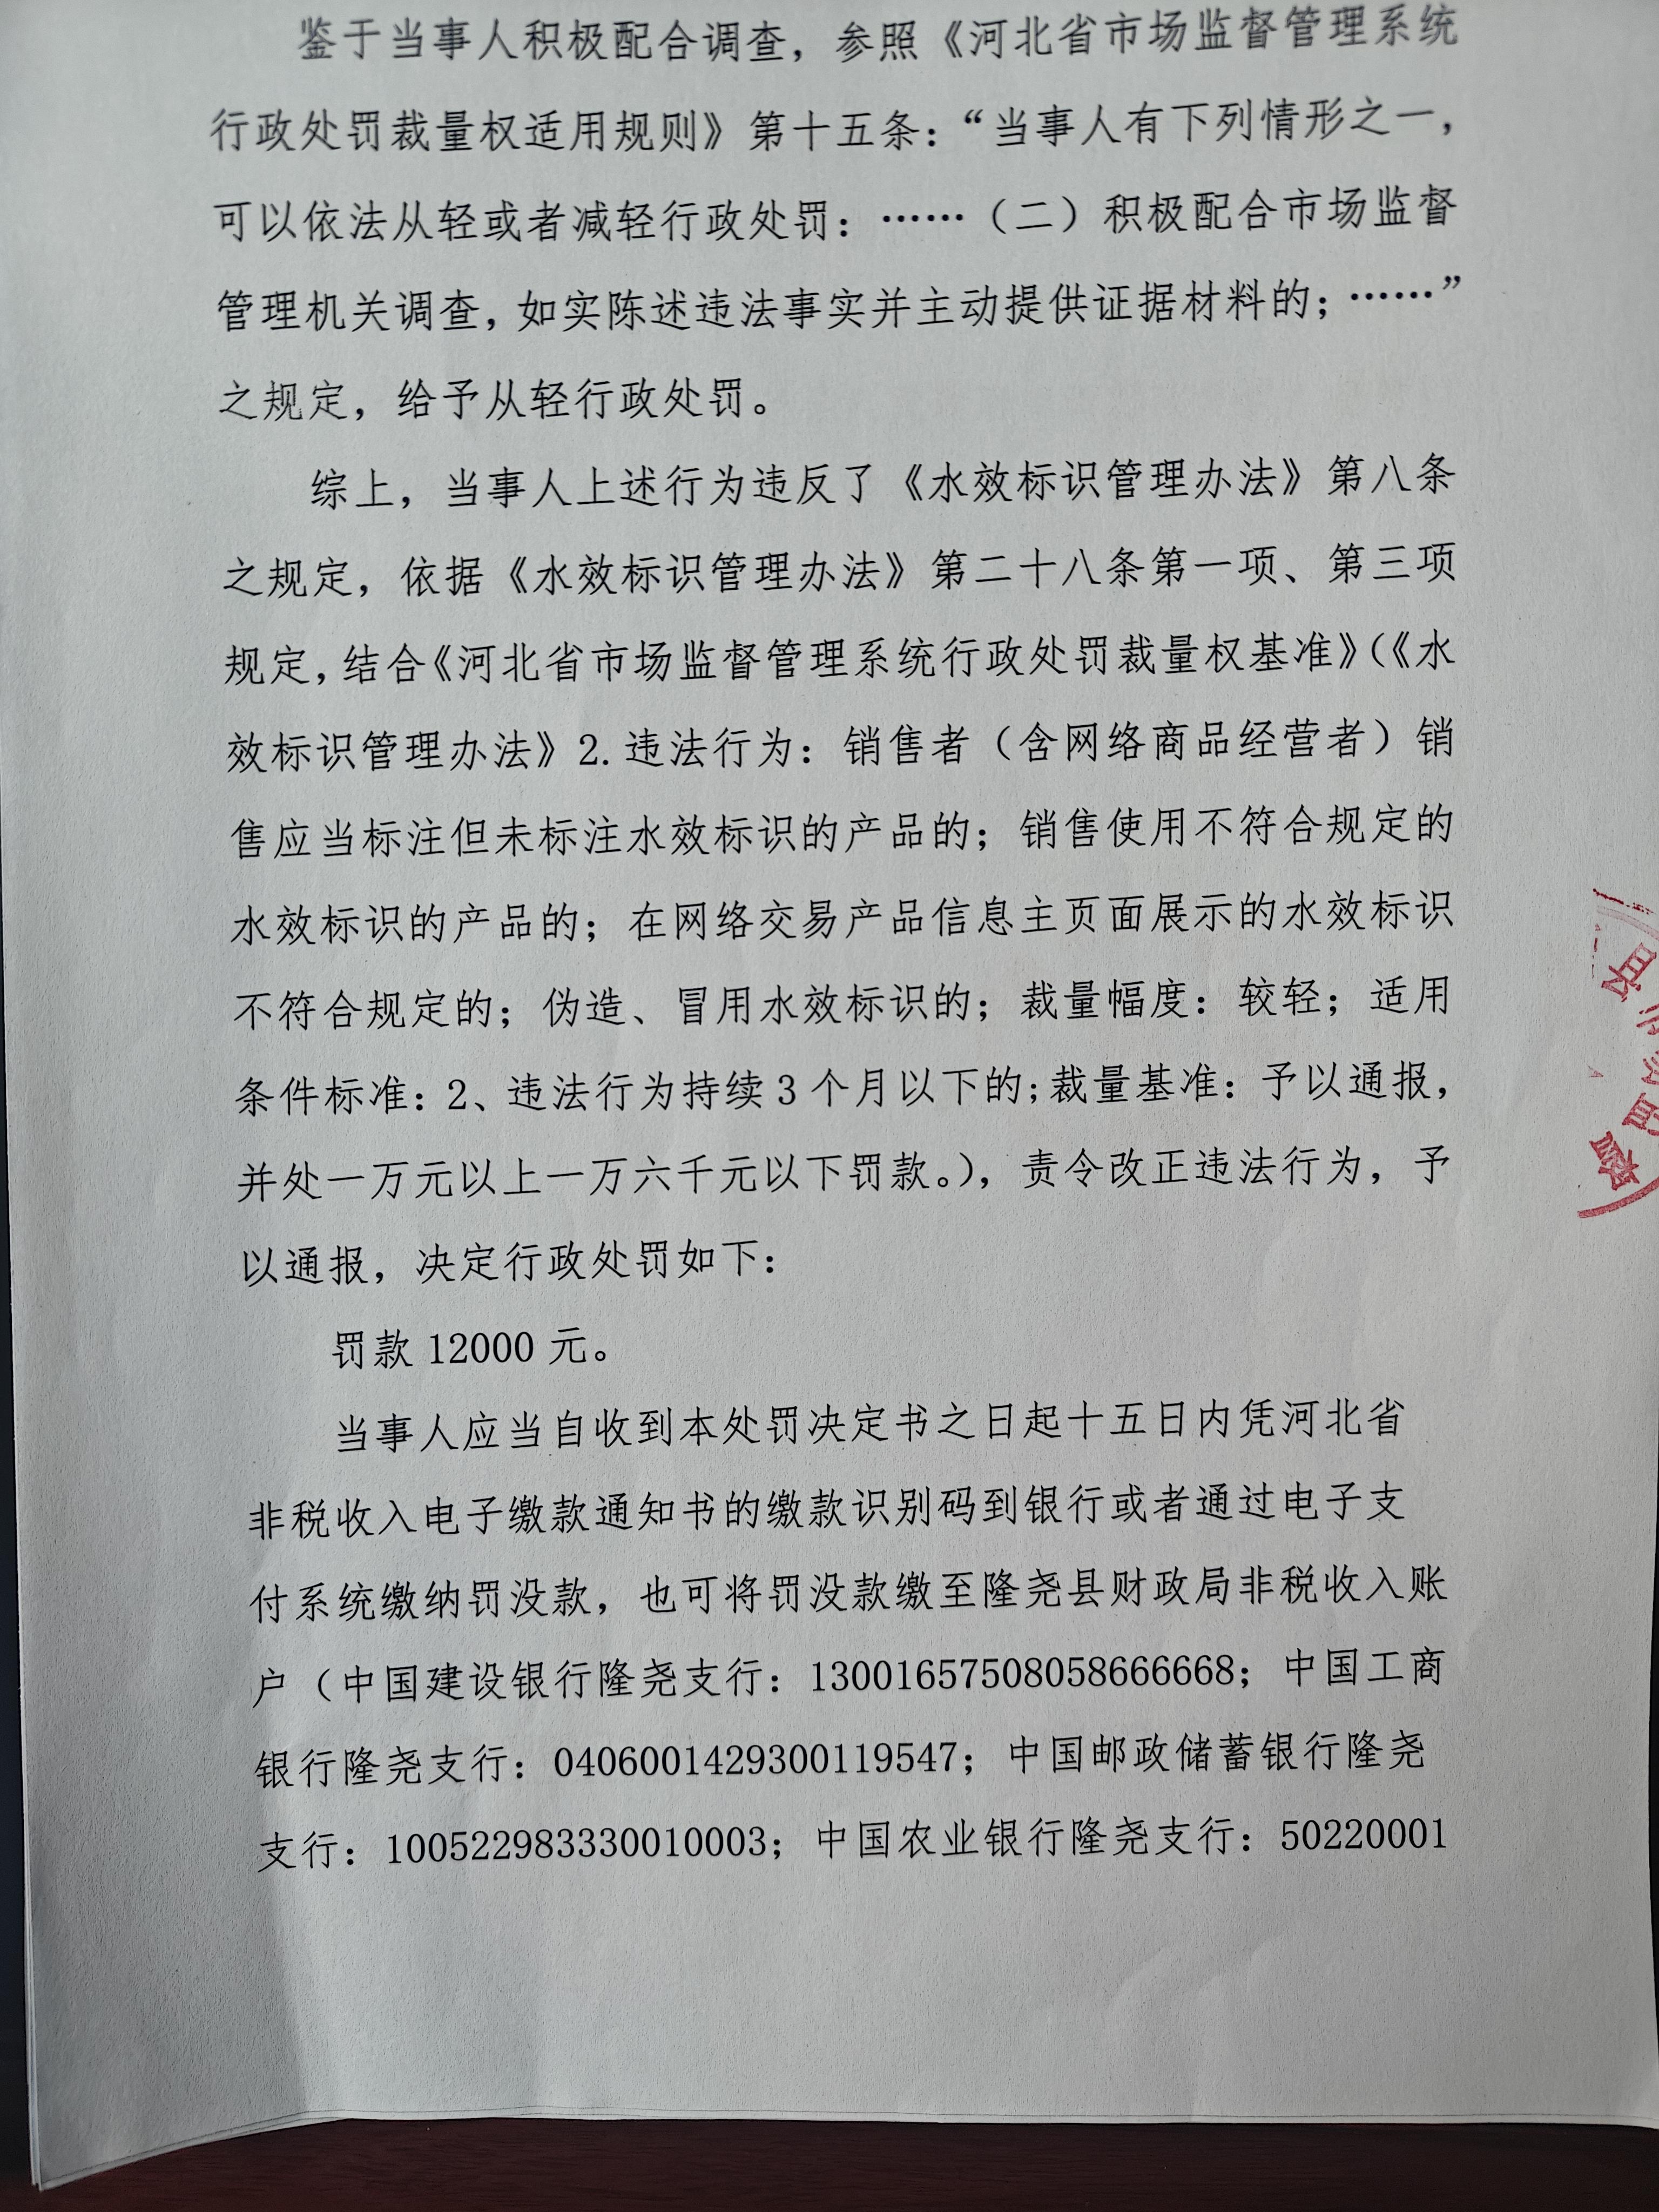 鉴于当事人积极配合调查，参照《河北省市场监督管理系统
行政处罚裁量权适用规则》第十五条：“当事人有下列情形之一，
可以依法从轻或者减轻行政处罚：……（二）积极配合市场监督
管理机关调查，如实陈述违法事实并主动提供证据材料的；……”
之规定，给予从轻行政处罚。
综上，当事人上述行为违反了《水效标识管理办法》第八条
之规定，依据《水效标识管理办法》第二十八条第一项、第三项
规定，结合《河北省市场监督管理系统行政处罚裁量权基准》（《水
效标识管理办法》2.违法行为：销售者（含网络商品经营者）销
售应当标注但未标注水效标识的产品的；销售使用不符合规定的
水效标识的产品的；在网络交易产品信息主页面展示的水效标识
不符合规定的；伪造、冒用水效标识的；裁量幅度：较轻；适用
条件标准：2、违法行为持续3个月以下的；裁量基准：予以通报，
并处一万元以上一万六千元以下罚款。），责令改正违法行为，予
以通报，决定行政处罚如下：
罚款 12000 元。
当事人应当自收到本处罚决定书之日起十五日内凭河北省
非税收入电子缴款通知书的缴款识别码到银行或者通过电子支
付系统缴纳罚没款，也可将罚没款缴至隆尧县财政局非税收入账
户（中国建设银行隆尧支行：13001657508058666668；中国工商
银行隆尧支行：0406001429300119547；中国邮政储蓄银行隆尧
支行：100522983330010003；中国农业银行隆尧支行：50220001
督